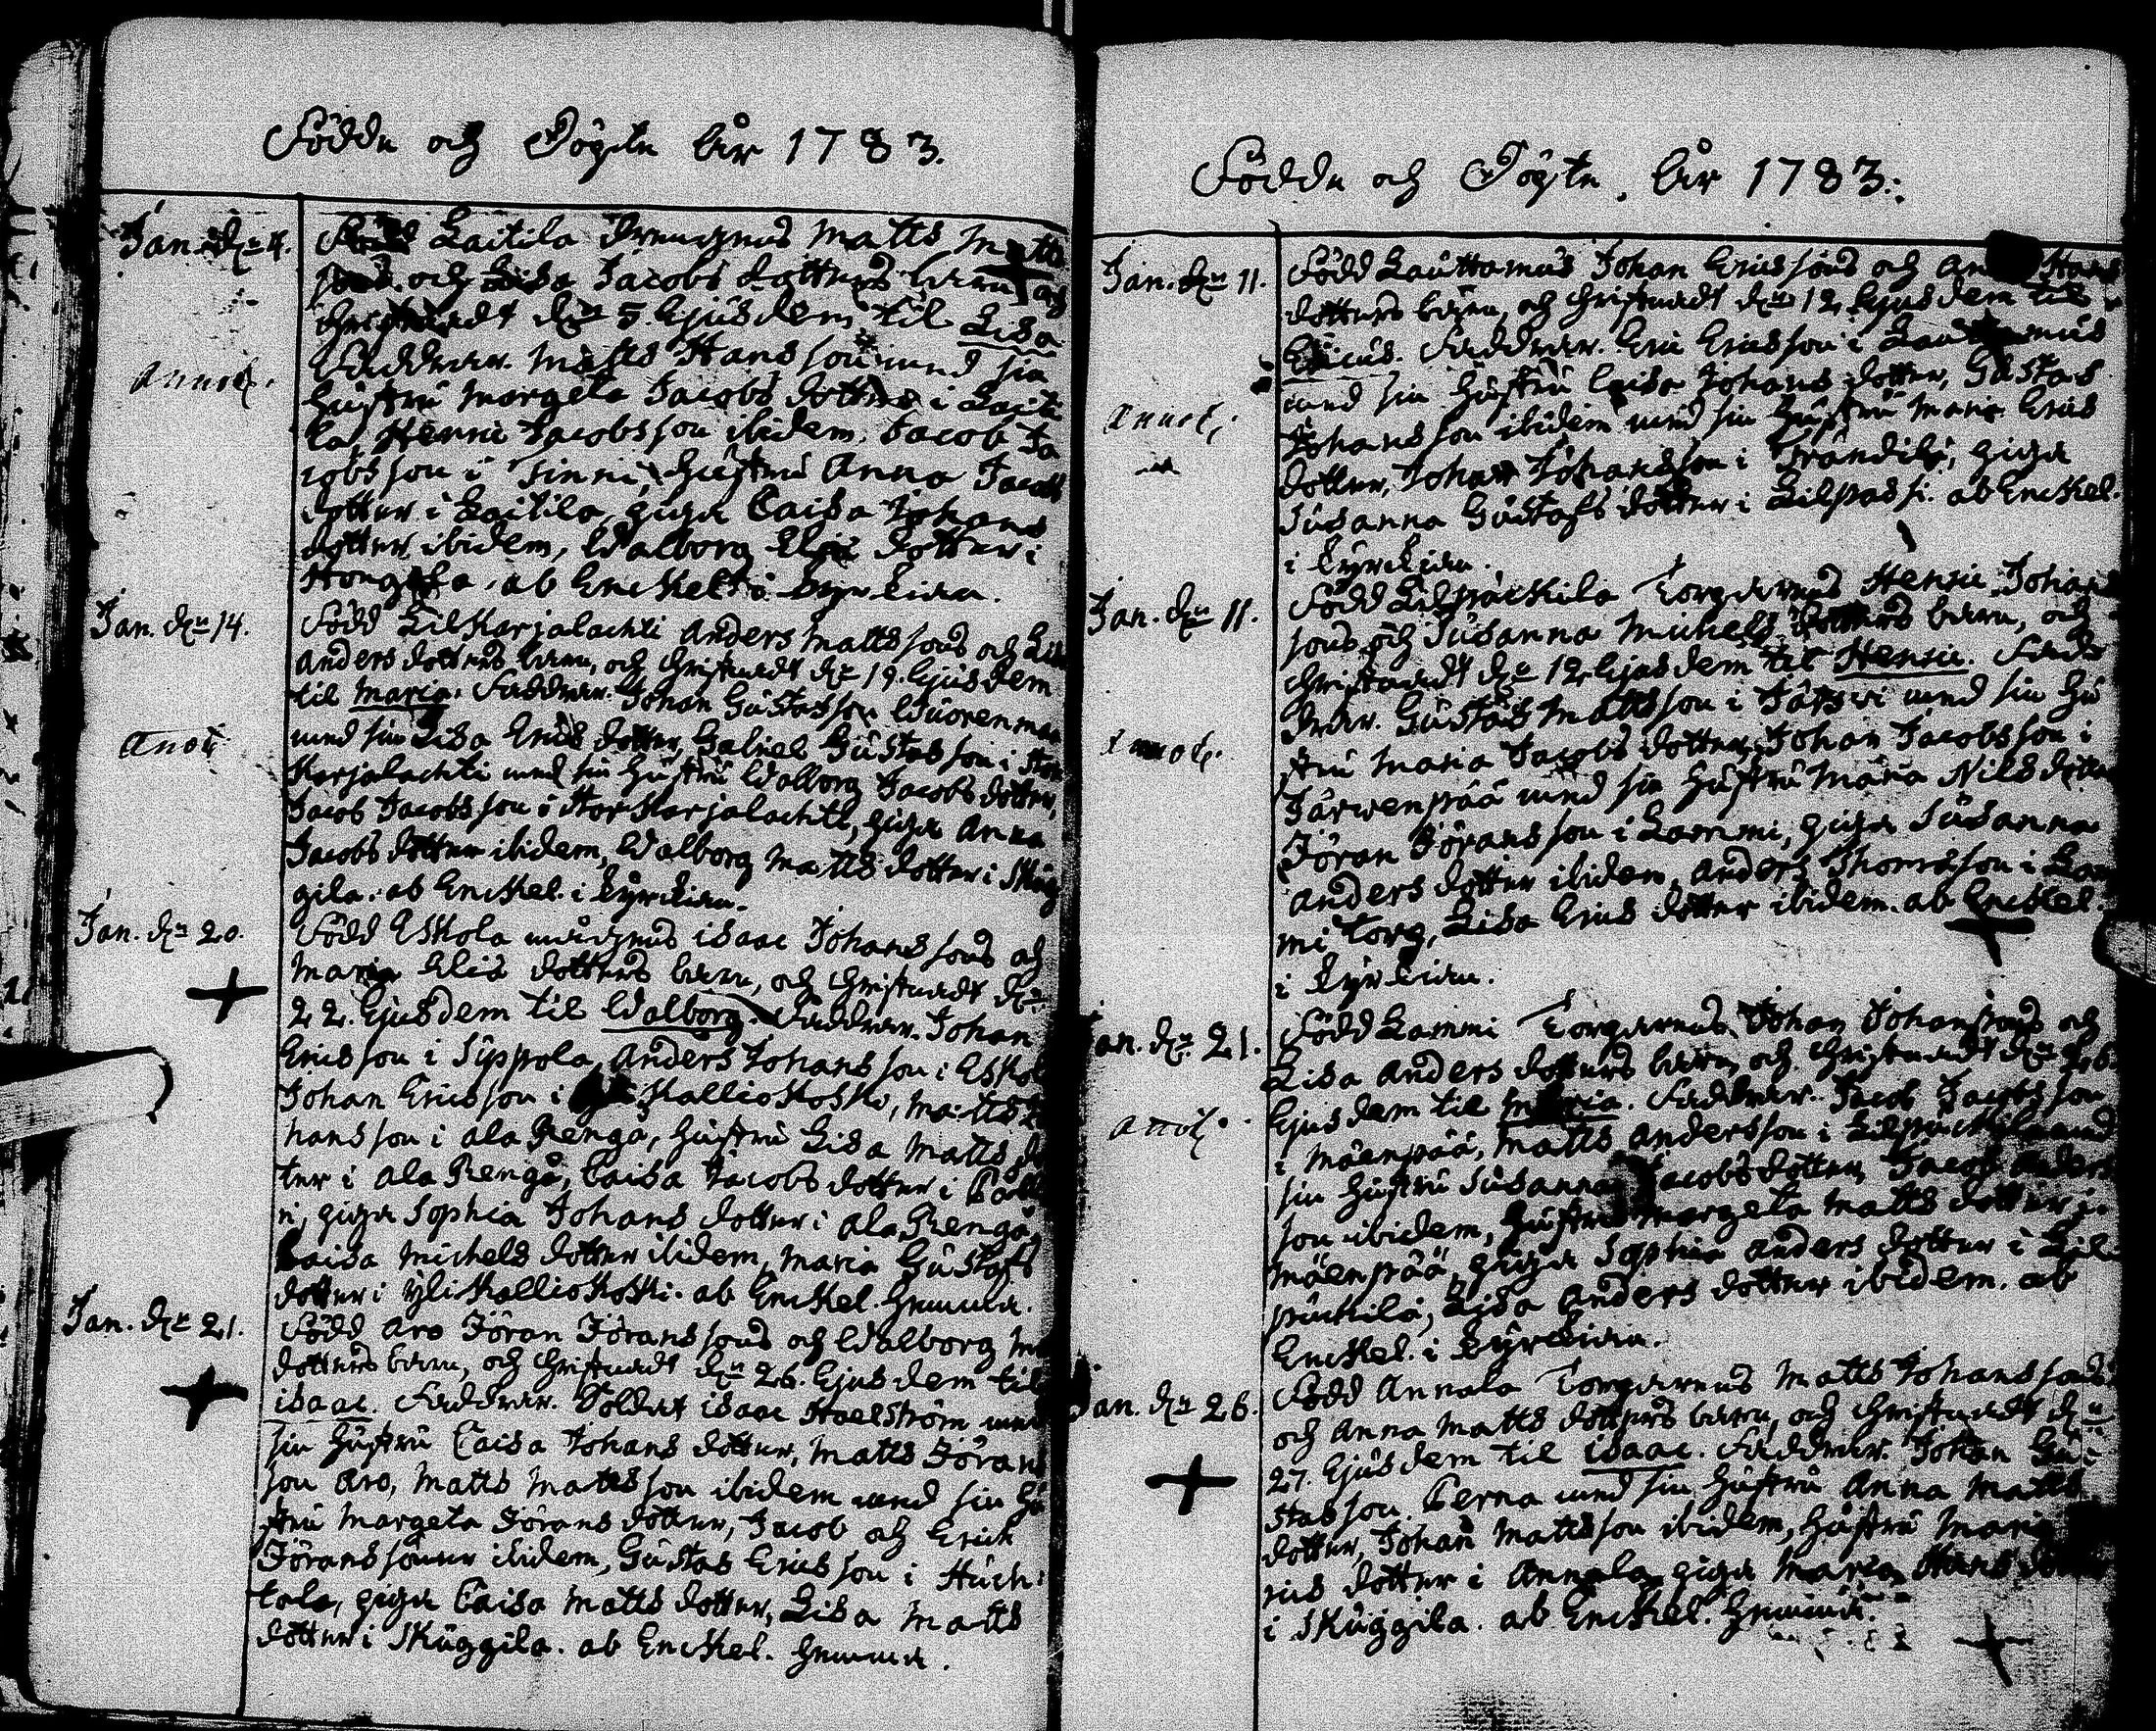 Födde och Dögte År 1783.
Jan. den 4.
Född Laitila Drengens Matts Matts
sons och Lisa Jacobs dotters barn, och
Christnadt den 5. Ejusdem til Lisa
Faddrar. Matts Hansson med sin
Annot.
hustru Margeta Jacobs dotter i Laiti
la, Henric Jacobsson ibidem, Jacob Ja
cobsson i Tinni, hustru Anna Jacobs
dotter i Laitila, piga Caisa Johans
dotter ibidem, Walborg Elias dotter i
Hongela. ab Enckel i Kyrckian.
Jan. den 14.
Född Lilkarjalachti Anders Mattssons och Lisa
Anders dotters barn, och Christnadt den 19. Ejusdem
til Maria. Faddrar. Johan Gustafsson Wuorenmaa
Anot.
med sin Lisa Erics dotter, Gabriel Gustafsson i Stor
Karjalachti med sin hustru Walborg Jacobs dotter,
Jacob Jacobsson i Storkarjalachti, piga Anna
Jacobs dotter ibidem, Walborg Matts dotter i Skug
gila. ab Enckel. i Kyrckian.
Jan. den 20.
Född Eskola mågens Isaac Johanssons och
Maria Elias dotters barn, och Christnadt den
22. Ejusdem til Walborg. Faddrar. Johan
Ericsson i Sippola, Anders Johansson i Eskola
Johan Ericsson i Kalliokoski, Matts Jo
hansson i ala Rengå, hustru Lisa Matts dot
ter i ala Rengå, Caisa Jacobs dotter i
ri, piga Sophia Johans dotter i ala Rengå
Caisa Michels dotter ibidem, Maria Gustafs
dotter i ÿliKalliokoski. ab Enckel. hemma.
Jan. den 21.
Född Aro Jöran Jöranssons och Walborg
dotters barn, och Christnadt den 26. Ejusdem til
Isaac. Faddrar. Soldat Isaac Hoelström med
sin hustru Caisa Johans dotter, Matts Jörans
son Aro, Matts Mattsson ibidem med sin hu
stru Margeta Jörans dotter, Jacob och Erick
Jöranssöner ibidem, Gustaf Ericsson i Huch
tala, piga Caisa Matts dotter, Lisa Matts
dotter i Skuggila. ab Enckel. hemma.
Födde och Dögte År 1783.
Jan. den 11.
Född Lauttamus Johan Ericssons och Hans
dotters barn, och Christnadt den 12 Ejusdem til
Ericus. Faddrar. Eric Ericsson i Lauttamus
med sin hustru Caisa Johans dotter, Gustaf
Annot.
Johansson ibidem med sin hustru Maria Erics
dotter, Johan Johansson i Trändilä, piga
Susanna Gustafs dotter i ab Enckel.
i Kyrckian.
Jan. den 11.
Född Lilpäckilä Torparens Henric Johans
sons och Susanna Michels dotters barn, och
Christnadt den 12 Ejusdem til Henric. Fad
drar. Gustaf Mattsson i Järwi med sin hu
Annot.
stru Maria Jacobs dotter, Johan Jacobsson i
Järwenpää med sin hustru Maria Nils dotter
Jöran Jöransson i Lammi, piga Susanna
Anders dotter ibidem, Anders Thomsson i Lam
mi Torp, Lisa Erics dotter ibidem. ab Enckel.
i Kyrckian.
Jan. den 21.
Född Lammi Torparens Johan Johanssons och
Lisa Anders dotters barn, och Christnadt den 26
Ejusdem til Maria. Faddrar. Jacob Jacobsson
Annot.
i Mäenpää, Matts Andersson i Lilpäckilä med
sin hustru Susanna Jacobs dotter, Jacob Anders
son ibidem, hustru Margeta Matts dotter i
Mäenpää, piga Sophia Anders dotter i Lil
päckilä, Lisa Anders dotter ibidem. ab
Enckel. i Kyrckian.
Jan. den 26.
Född Annala Torparens Matts Johanssons
och Anna Matts dotters barn, och Christnadt den
27. Ejusdem til Isaac. Faddrar. Johan Gu
stafsson Perna med sin hustru Anna Matts
dotter, Johan Mattsson ibidem, hustru Maria
rics dotter i Annala, piga Maria Hans dotter
i Skuggila. ab Enckel. hemma.